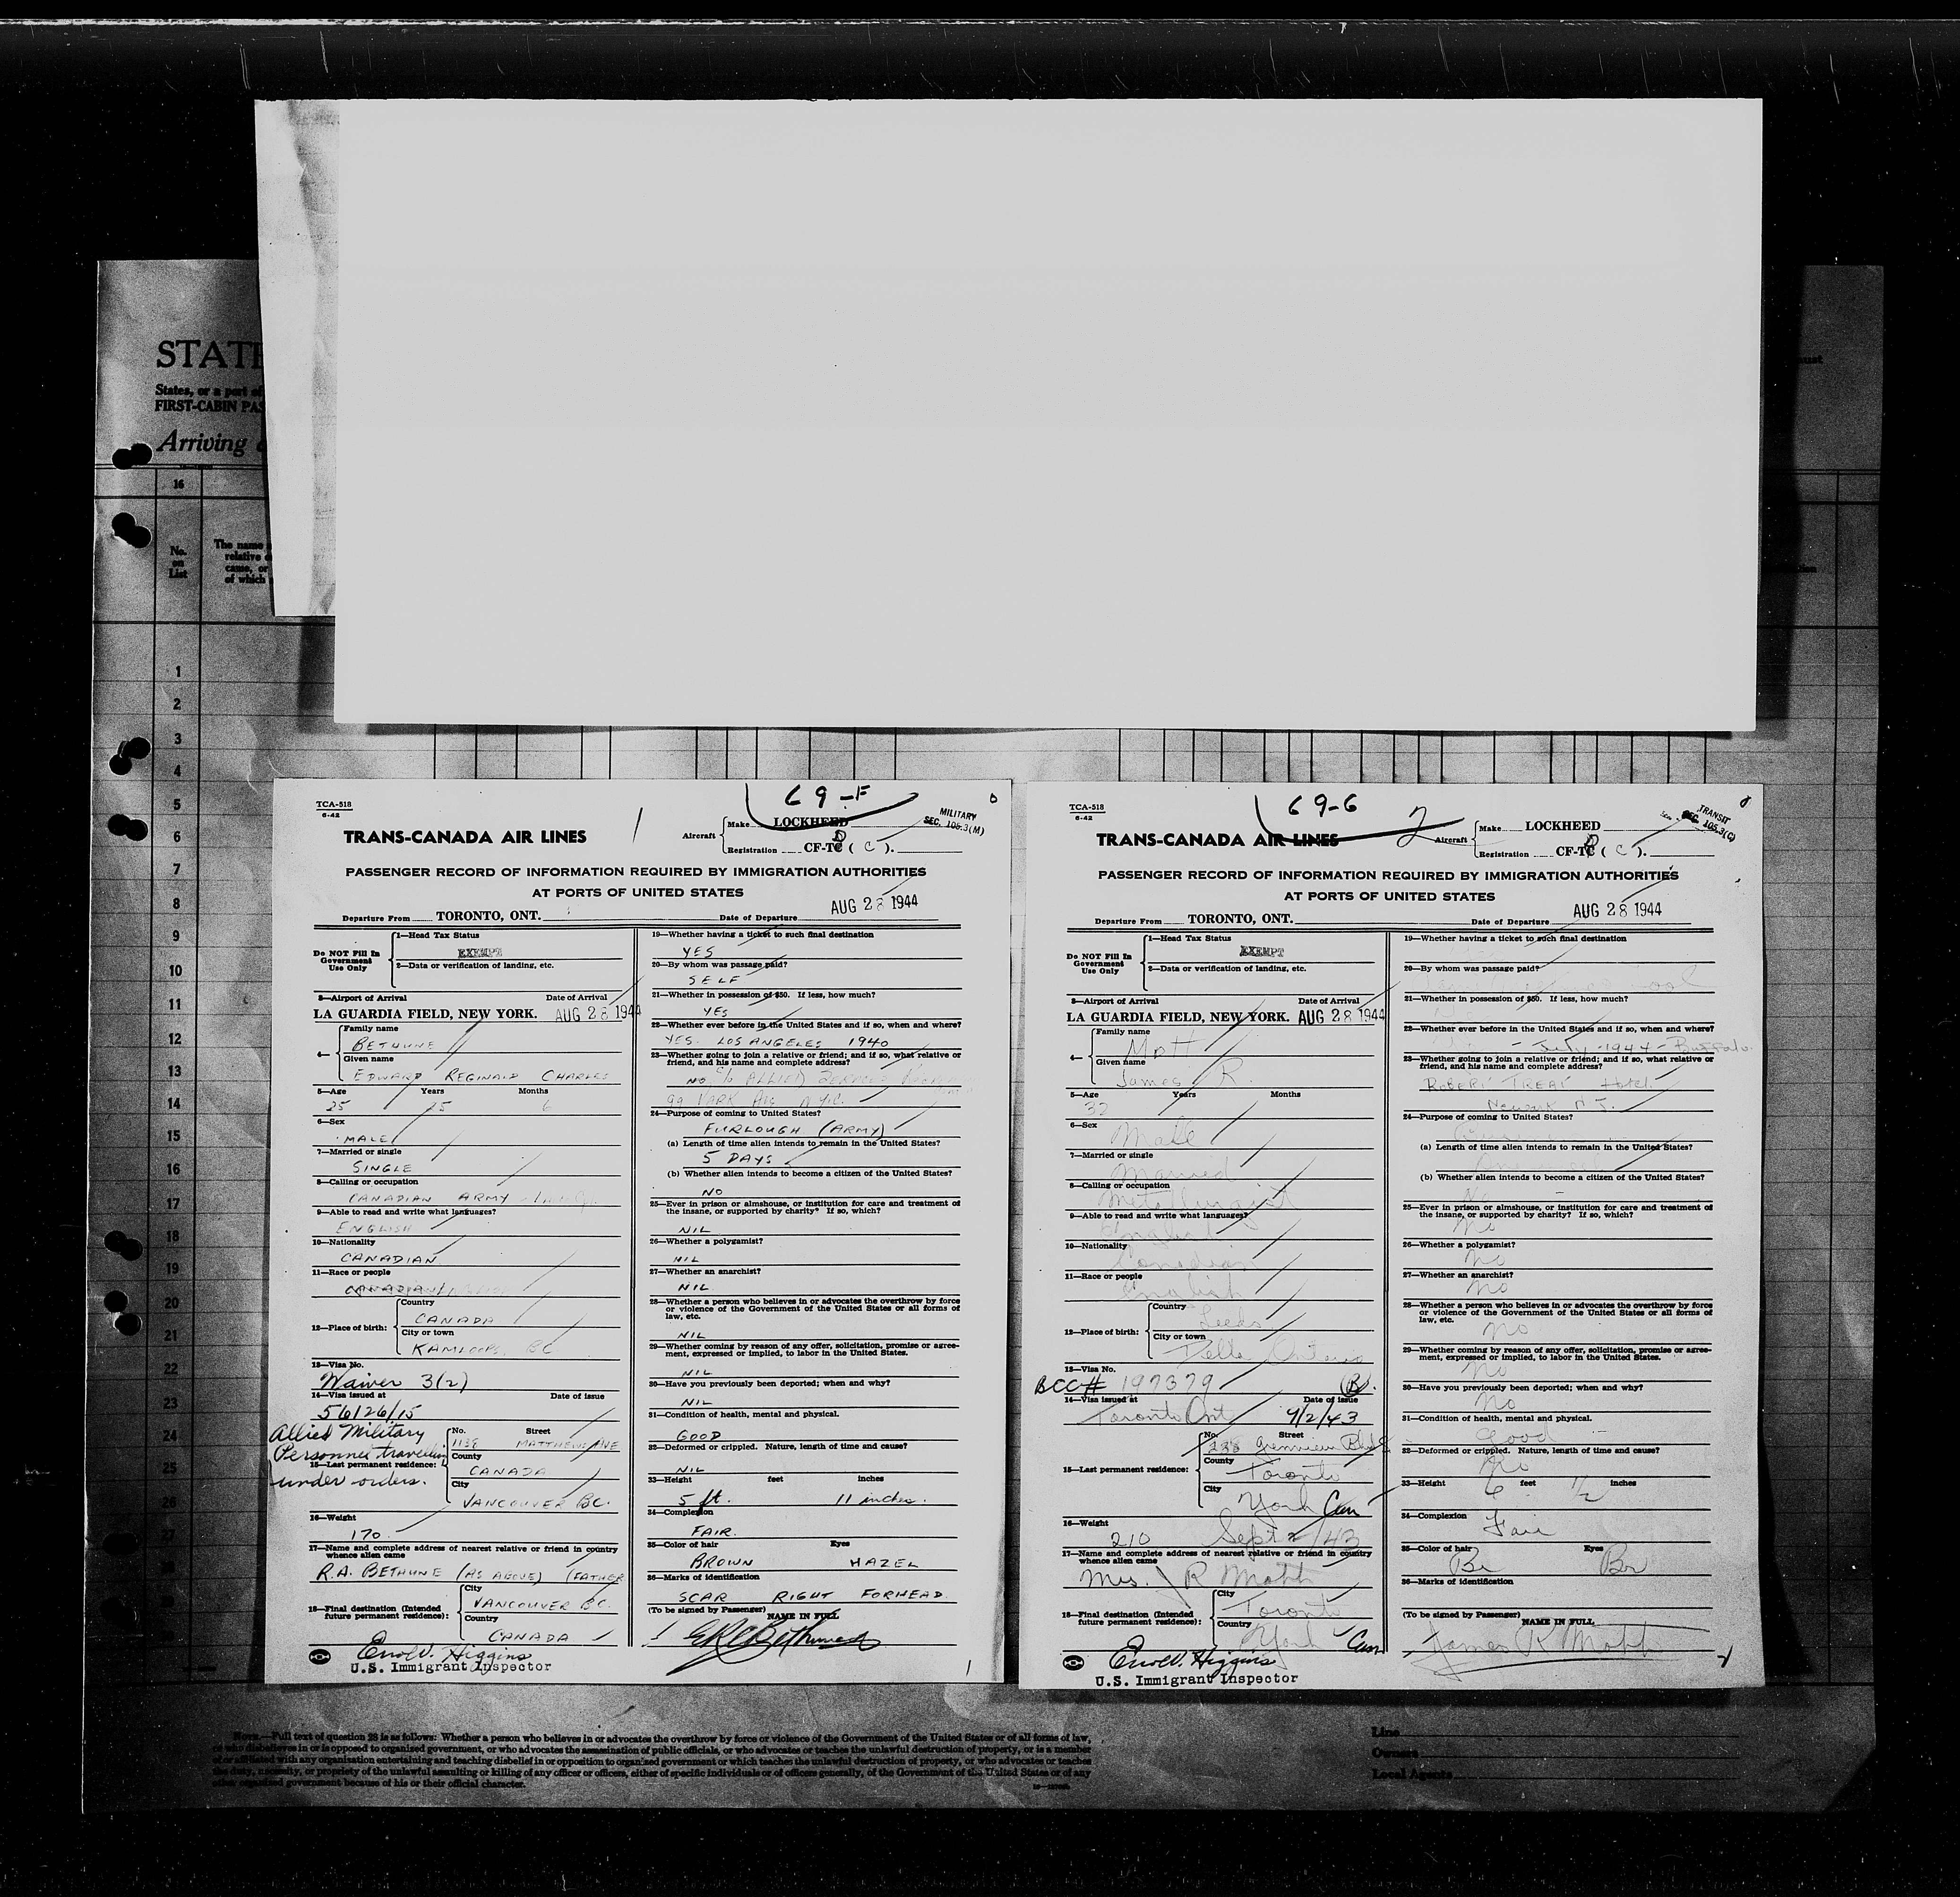 STATE
States, or a port of
FIRST-CABIN PAS
Arriving
16
No.
on
List
The name
relative
came, or
of which
1
2
3
4
5
6
7
8
9
10
11
12
13
14
15
16
17
18
19
20
21
22
23
24
25
26
27
69-F
TCA-518
6-42
TRANS-CANADA AIR LINES
1
Aircraft
Make LOCKHEED
Registration CF-TC (C).
MILITARY
SEC. 105.3(M)
PASSENGER RECORD OF INFORMATION REQUIRED BY IMMIGRATION AUTHORITIES
AT PORTS OF UNITED STATES
Departure From TORONTO, ONT. Date of Departure AUG 28 1944
Do NOT Fill In
Government
Use Only
1—Head Tax Status
EXEMPT
2—Data or verification of landing, etc.
3—Airport of Arrival Date of Arrival
LA GUARDIA FIELD, NEW YORK. AUG 28 1944
4—
Family name
BETHUNE
Given name
EDWARD REGINALD CHARLES
5—Age Years Months
25 25 6
6—Sex
MALE
7—Married or single
SINGLE
8—Calling or occupation
CANADIAN ARMY
9—Able to read and write what languages?
ENGLISH
10—Nationality
CANADIAN
11—Race or people
CANADIAN
12—Place of birth:
Country
CANADA
City or town
KAMLOOPS, BC
13—Visa No.
Waiver 3(2)
14—Visa issued at Date of issue
56126/15
Allied Military
Personnel travelling
under orders.
15—Last permanent residence:
No. Street
1138 MATTHEWS AVE
County
CANADA
City
VANCOUVER BC.
16—Weight
170
17—Name and complete address of nearest relative or friend in country
whence alien came
R.A. BETHUNE (AS ABOVE) (FATHER
18—Final destination (Intended
future permanent residence):
City
VANCOUVER BC.
Country
CANADA
Errol V. Higgins
U.S. Immigrant Inspector
19—Whether having a ticket to such final destination
YES
20—By whom was passage paid?
SELF
21—Whether in possession of $50. If less, how much?
YES
22—Whether ever before in the United States and if so, when and where?
YES. LOS ANGELES 1940
23—Whether going to join a relative or friend; and if so, what relative or
friend, and his name and complete address?
NO c/o ALLIED SERVICES
99 PARK AVE N.Y.C.
24—Purpose of coming to United States?
FURLOUGH (ARMY)
(a) Length of time alien intends to remain in the United States?
5 DAYS
(b) Whether alien intends to become a citizen of the United States?
NO
25—Ever in prison or almshouse, or institution for care and treatment of
the insane, or supported by charity? If so, which?
NIL
26—Whether a polygamist?
NIL
27—Whether an anarchist?
NIL
28—Whether a person who believes in or advocates the overthrow by force
or violence of the Government of the United States or all forms of
law, etc.
NIL
29—Whether coming by reason of any offer, solicitation, promise or agree-
ment, expressed or implied, to labor in the United States.
NIL
30—Have you previously been deported; when and why?
NIL
31—Condition of health, mental and physical.
GOOD
32—Deformed or crippled. Nature, length of time and cause?
NIL
33—Height feet inches
5 ft. 11 inches.
34—Complexion
FAIR.
35—Color of hair Eyes
BROWN HAZEL
36—Marks of identification
SCAR RIGHT FORHEAD
(To be signed by Passenger) NAME IN FULL
ERC Bethune
69-G
TCA-518
6-42
TRANS-CANADA AIR LINES
2
Aircraft
Make LOCKHEED
Registration CF-TC (C).
TRANSIT
SEC. 105.3(C)
PASSENGER RECORD OF INFORMATION REQUIRED BY IMMIGRATION AUTHORITIES
AT PORTS OF UNITED STATES
Departure From TORONTO, ONT. Date of Departure AUG 28 1944
Do NOT Fill In
Government
Use Only
1—Head Tax Status
EXEMPT
2—Data or verification of landing, etc.
3—Airport of Arrival Date of Arrival
LA GUARDIA FIELD, NEW YORK. AUG 28 1944
4—
Family name
Given name
James R.
5—Age Years Months
32
6—Sex
Male
7—Married or single
Married
8—Calling or occupation
Metallurgist
9—Able to read and write what languages?
English
10—Nationality
Canadian
11—Race or people
English
12—Place of birth:
Country
Leeds
City or town
Delta Ontario
13—Visa No.
BCC# 197379 (B).
14—Visa issued at Date of issue
Toronto Ont 9/2/43
15—Last permanent residence:
No. Street
238 Grenview Blvd S
County
Toronto
City
York Can
16—Weight
210 Sept 2/43
17—Name and complete address of nearest relative or friend in country
whence alien came
Mrs. J R
18—Final destination (Intended
future permanent residence):
City
Toronto
Country
York Can
Errol V. Higgins
U.S. Immigrant Inspector
19—Whether having a ticket to such final destination
20—By whom was passage paid?
21—Whether in possession of $50. If less, how much?
22—Whether ever before in the United States and if so, when and where?
- July - 1944 - Buffalo
23—Whether going to join a relative or friend; and if so, what relative or
friend, and his name and complete address?
ROBERT TREAT Hotel
Newark N.J.
24—Purpose of coming to United States?
(a) Length of time alien intends to remain in the United States?
(b) Whether alien intends to become a citizen of the United States?
No
25—Ever in prison or almshouse, or institution for care and treatment of
the insane, or supported by charity? If so, which?
No
26—Whether a polygamist?
No
27—Whether an anarchist?
No
28—Whether a person who believes in or advocates the overthrow by force
or violence of the Government of the United States or all forms of
law, etc.
No
29—Whether coming by reason of any offer, solicitation, promise or agree-
ment, expressed or implied, to labor in the United States.
No
30—Have you previously been deported; when and why?
No
31—Condition of health, mental and physical.
Good
32—Deformed or crippled. Nature, length of time and cause?
No
33—Height feet inches
6 1/2
34—Complexion
Fair
35—Color of hair Eyes
Br Br
36—Marks of identification
(To be signed by Passenger) NAME IN FULL
James R
NOTE.—Full text of question 28 is as follows: Whether a person who believes in or advocates the overthrow by force or violence of the Government of the United States or of all forms of law,
or who disbelieves in or is opposed to organized government, or who advocates the assassination of public officials, or who advocates or teaches the unlawful destruction of property, or is a member
of or affiliated with any organization entertaining and teaching disbelief in or opposition to organized government or which teaches the unlawful destruction of property, or who advocates or teaches
the duty, necessity, or propriety of the unlawful assaulting or killing of any officer or officers, either of specific individuals or of officers generally, of the Government of the United States or of any
other organized government because of his or their official character.
Line
Owners
Local Agents